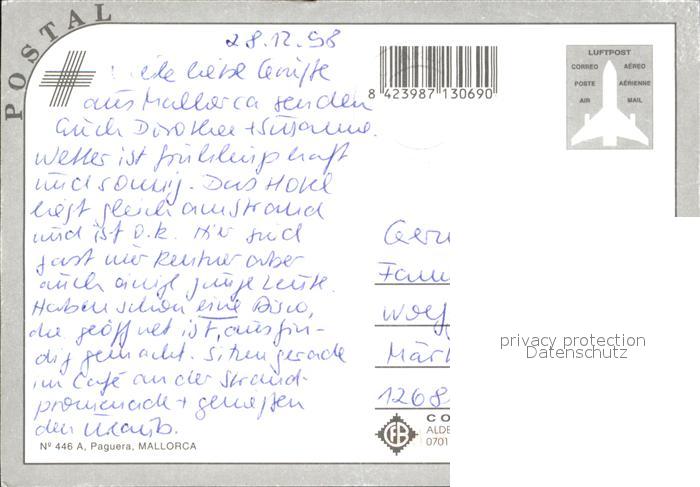 POSTAL
28.12.98
Viele liebe Grüsse
aus Mallorca senden
Euch Dorothea + Susanne.
Wetter ist frühlingshaft
und sonnig. Das Hotel
liegt gleich am Strand
und ist o.k. Hier sind
fast nur Rentner aber
auch einige junge Leute.
Haben schon eine Disco,
die geöffnet ist, ausfin-
dig gemacht. Sitzen gerade
im Café an der Strand-
promenade + genießen
den Urlaub.
Nº 446 A, Paguera, MALLORCA
8 423987 130690
LUFTPOST
CORREO AÉREO
POSTE AÉRIENNE
AIR MAIL
Fam
Wolf
Märk
1268
privacy protection
Datenschutz
CO
ALDE
0701